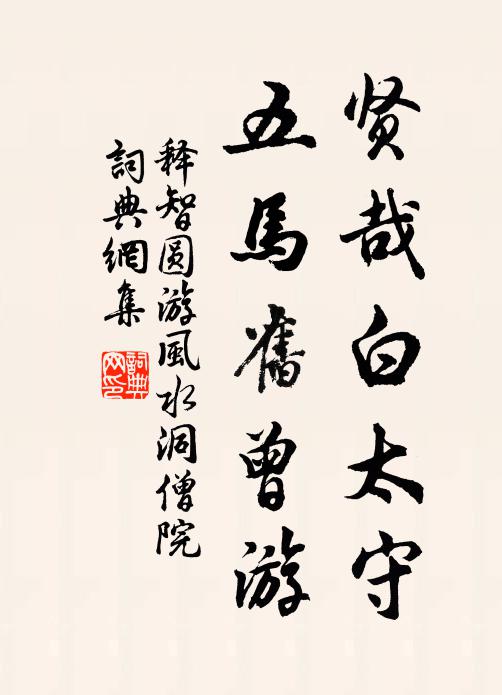 贤哉白太守
五馬舊曾游
释智圆游風水洞僧院
詞典網集
詞典网印